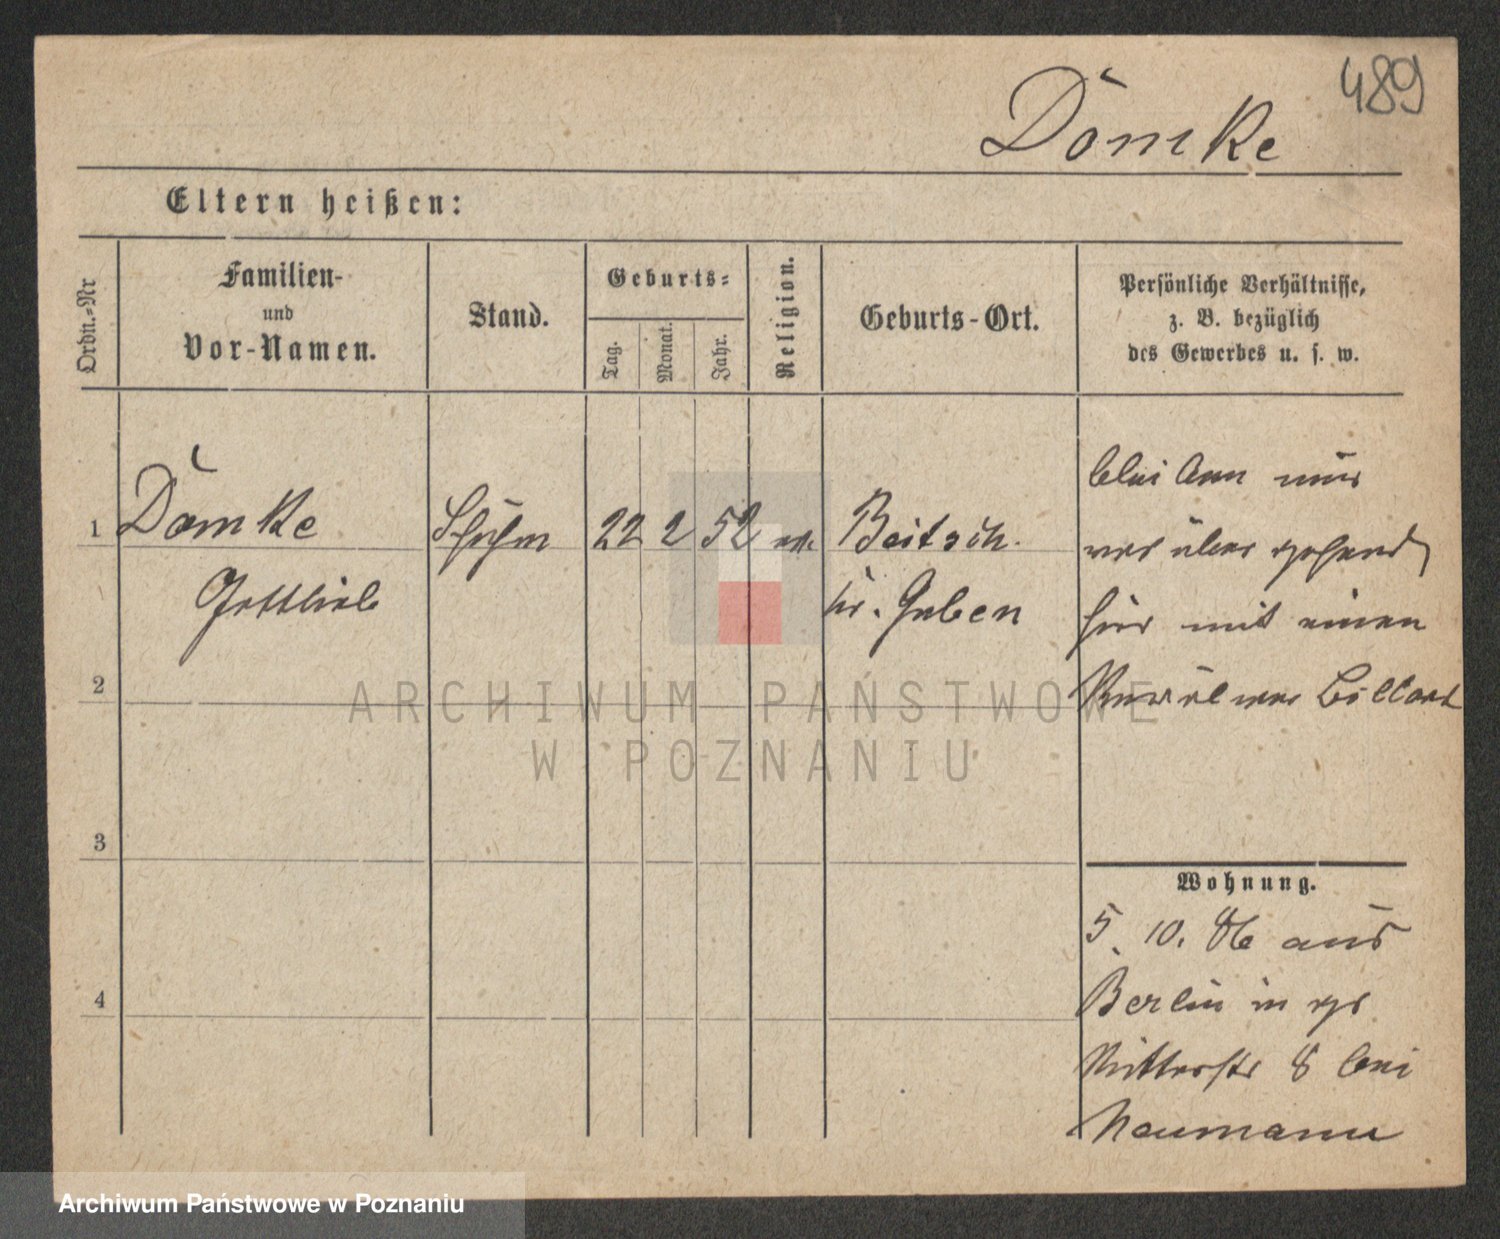 489
Dömke
Eltern heißen:
Ordn.-Nr
Familien-
und
Vor-Namen.
Stand.
Geburts-
Tag.
Monat.
Jahr.
Religion.
Geburts-Ort.
Persönliche Verhältnisse,
z. B. bezüglich
des Gewerbes u. s. w.
1
Dömke
Gottlieb
Schuhm
22 2 52 ev.
Beitsch.
kr. Guben
bleiben nur
vorübergehend
hier mit einem
Billard
2
3
4
Wohnung.
5. 10. 86 aus
Berlin in
Ritterstr 8 bei
Naumann
ARCHIWUM PAŃSTWOWE
W POZNANIU
Archiwum Państwowe w Poznaniu